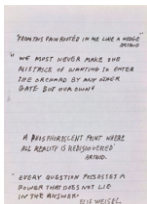 "FROM THIS PAIN ROOTED IN ME LIKE A WEDGE"
ARTAUD
" WE MUST NEVER MAKE THE
MISTAKE OF WANTING TO ENTER
THE ORCHARD BY ANY OTHER
GATE BUT OUR OWN "
A PHOSPHORESCENT POINT WHERE
ALL REALITY IS REDISCOVERED
ARTAUD.
" EVERY QUESTION POSSESSES A
POWER THAT DOES NOT LIE
IN THE ANSWER"
ELIE WEISEL.